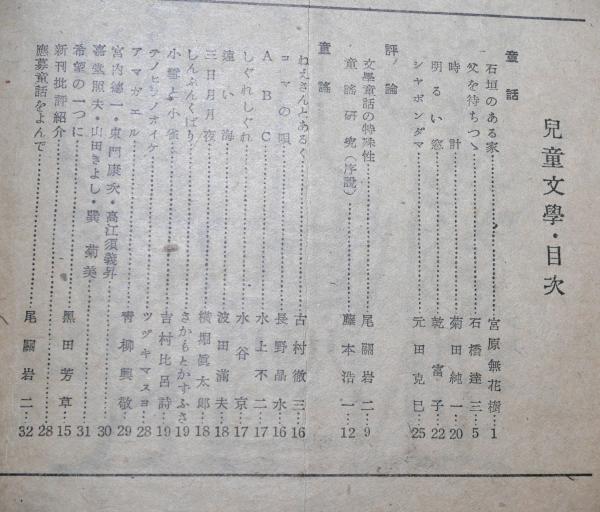 兒童文學・目次
童話
石垣のある家……宮原無花樹…1
父を待ちつゝ……石橋達三…5
時計……菊田純一…20
明るい窓……乾富子…22
シャボンダマ……元田克巳…25
評論
文學童話の特殊性……尾關岩二…9
童謠研究(序説)……藤本浩一…12
童謠
ねえさんとあるく……古村徹三…16
コマの唄……長野晶水…16
ABC……水上不二…17
しぐれしぐれ……水谷京…17
遠い海……波田滿夫…18
三日月月夜……横堀眞太郎…18
しんふんくばり……さかもとかすふさ…19
小雪と小雀……吉村比呂詩…19
テノヒラノオイケ……ツヅキマスヨ…28
アマガエル……青柳興敬…29
宮内德一・東門康次・高江須義昇……30
嘉堂照夫・山田きよし・巽菊美……31
希望の一つに……黒田芳草…15
新刊批評紹介……28
應募童話をよんで……尾關岩二…32